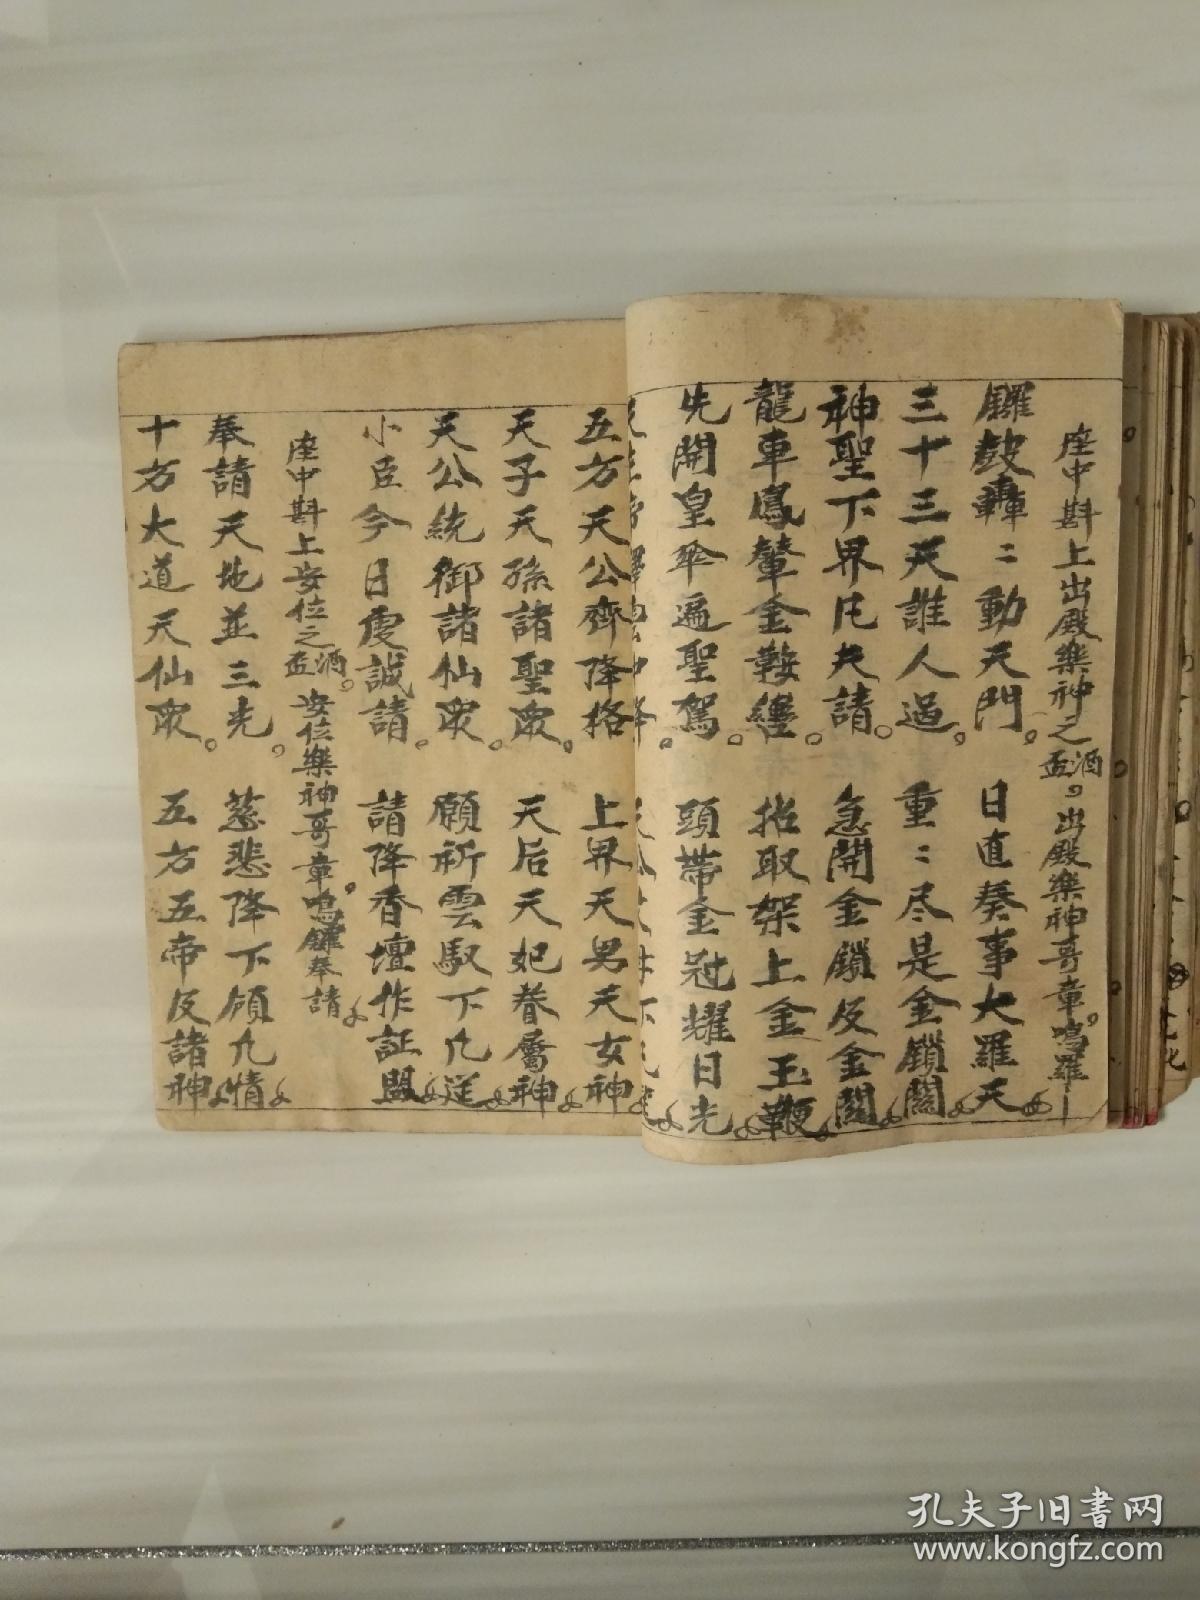 座中斟上出殿樂神之酒盃。出殿樂神哥章。鳴羅
鑼鼓轟〻動天門。日直奏事大羅天
三十三天誰人過。重〻尽是金鎖關
神聖下界凡夫請。急開金鎖及金關
龍車鳳輦金鞍繮。招取架上金玉鞭
先開皇傘遍聖駕。頭帶金冠耀日光
五方天公齊降格 上界天男天女神
天子天孫諸聖眾。天后天妃眷屬神
天公統御諸仙眾。願祈雲馭下凡筵
小臣今日虔誠請。請降香壇作証盟
座中斟上安位之酒盃。安位樂神哥章。鳴鑼奉請
奉請天地並三光。慈悲降下領凡情
十方大道天仙眾。五方五帝及諸神
孔夫子旧书网
www.kongfz.com